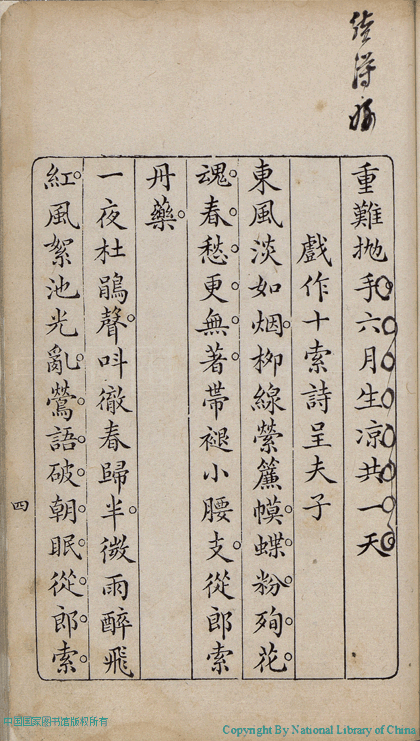 重難抛手六月生凉共一天
戲作十索詩呈夫子
東風淡如烟柳線縈簾幙蝶粉殉花
魂春愁更無著帶褪小腰支從郎索
丹藥
一夜杜鵑聲呌徹春歸半微雨醉飛
紅風絮池光亂鶯語破朝眠從郎索
四
中国国家图书馆版权所有
Copyright By National Library of China